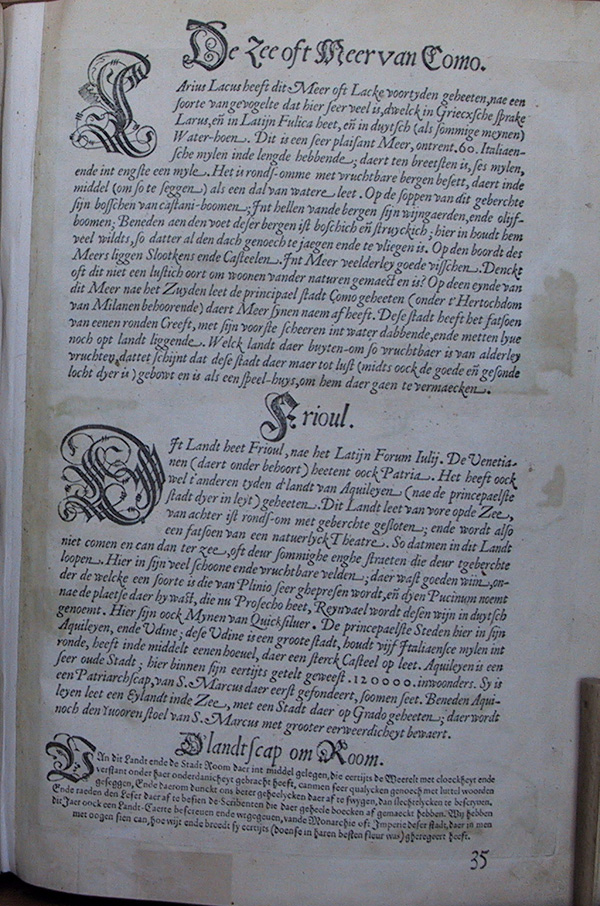 De Zee oft Meer van Como.
LArius Lacus heeft dit Meer oft Lacke voortyden geheeten, nae een
soorte van gevogelte dat hier seer veel is, dwelck in Griecxsche sprake
Larus, eñ in Latijn Fulica heet, eñ in duytsch (als sommige meynen)
Water-hoen. Dit is een seer plaisant Meer, ontrent .60. Italiaen-
sche mylen inde lengde hebbende; daert ten breetsten is, ses mylen,
ende int engste een myle. Het is ronds-omme met vruchtbare bergen besett, daert inde
middel (om so te seggen) als een dal van watere leet. Op de soppen van dit geberchte
sijn bosschen van castani-boomen; Int hellen vande bergen sijn wijngaerden, ende olijf-
boomen; Beneden aen den voet deser bergen ist boschich eñ struyckich; hier in houdt hem
veel wildts, so datter al den dach genoech te jaegen ende te vliegen is. Op den boordt des
Meers liggen Slootkens ende Casteelen. Int Meer veelderley goede visschen. Denckt
oft dit niet een lustich oort om woonen vander naturen gemaect en is? Op deen eynde van
dit Meer nae het Zuyden leet de principael stadt Como geheeten (onder t'Hertochdom
van Milanen behoorende) daert Meer synen naem af heeft. Dese stadt heeft het fatsoen
van eenen ronden Creeft, met sijn voorste scheeren int water dabbende, ende metten lyve
noch opt landt liggende. Welck landt daer buyten-om so vruchtbaer is van alderley
vruchten, dattet schijnt dat dese stadt daer maer tot lust (midts oock de goede eñ gesonde
locht dyer is) gebowt en is als een speel-huys, om hem daer gaen te vermaecken.
Frioul.
DIt Landt heet Frioul, nae het Latijn Forum Iulij. De Venetia-
nen (daert onder behoort) heetent oock Patria. Het heeft oock
wel t'anderen tyden d'landt van Aquileyen (nae de princepaelste
stadt dyer in leyt) geheeten. Dit Landt leet van vore op de Zee,
van achter ist ronds-om met geberchte gesloten; ende wordt also
een fatsoen van een natuerlyck Theatre. So datmen in dit Landt
niet comen en can dan ter zee, oft deur sommighe enghe straeten die deur tgeberchte
loopen. Hier in sijn veel schoone ende vruchtbare velden; daer wast goeden wijn, on-
der de welcke een soorte is die van Plinio seer ghepresen wordt, eñ dyen Pucinum noemt
nae de plaetse daer hy wast, die nu Prosecho heet, Reynvael wordt desen wijn in duytsch
genoemt. Hier sijn oock Mynen van Quicksilver. De princepaelste Steden hier in sijn
Aquileyen, ende Udine; dese Udine is een groote stadt, houdt vijf Italiaensce mylen int
ronde, heeft inde middelt eenen hoeuel, daer een sterck Casteel op leet. Aquileyen is een
seer oude Stadt; hier binnen sijn eertijts getelt geweest .120000. inwoonders. Sy is
een Patriarchscap, van S. Marcus daer eerst gefondeert, soomen seet. Beneden Aqui-
leyen leet een Eylandt inde Zee, met een Stadt daer op Grado geheeten; daer wordt
noch den Yuooren stoel van S. Marcus met grooter eerweerdicheyt bewaert.
D'landtscap om Room.
VAn dit Landt ende de Stadt Room daer int middel gelegen, die eertijts de Weerelt met cloeckheyt ende
verstant onder haer onderdanicheyt gebracht heeft, canmen seer qualycken genoech met luttel woorden
geseggen, Ende daerom dunckt ons beter geheelycken daer af te swygen, dan slechtelycken te bescryven.
Ende raeden den Leser daer af te besien de Scribenten die daer geheele boecken af gemaeckt hebben. Wij hebben
dit Jaer oock een Landt-Caerte bescreuen ende wtgegeuen, vande Monarchie oft Imperie deser stadt, daer in men
met oogen sien can, hoe wijt ende breedt sy eertijts (doense in haren besten fleur was) gheregeert heeft.
35